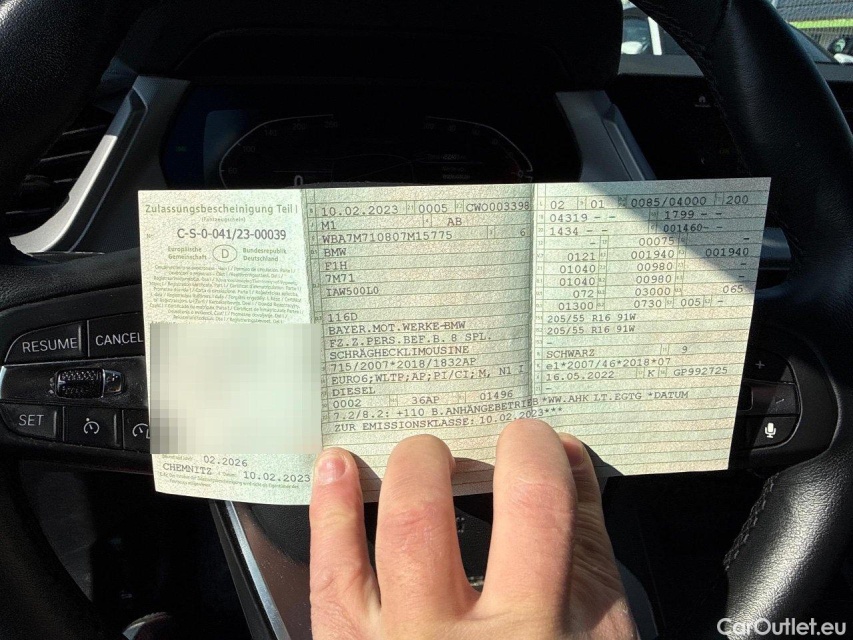 Zulassungsbescheinigung Teil I
(Fahrzeugschein)
C-S-0-041/23-00039
Europäische Gemeinschaft D Bundesrepublik Deutschland
02.2026
CHEMNITZ 10.02.2023
10.02.2023 0005 CWO003398
M1 AB
WBA7M710807M15775 6
BMW
F1H
7M71
IAW500L0
116D
BAYER.MOT.WERKE-BMW
FZ.Z.PERS.BEF.B. 8 SPL.
SCHRÄGHECKLIMOUSINE
715/2007*2018/1832AP
EURO6;WLTP;AP;PI/CI;M, N1 I
DIESEL
0002 36AP 01496
7.2/8.2: +110 B.ANHÄNGEBETRIEB*WW.AHK LT.EGTG *DATUM
ZUR EMISSIONSKLASSE: 10.02.2023***
02 01 0085/04000 200
04319 -- 1799 --
1434 -- 001460--
- 00075 -
0121 001940 001940
01040 00980 -
01040 00980 -
072 03000 065
01300 0730 005 -
205/55 R16 91W
205/55 R16 91W
-
SCHWARZ 9
e1*2007/46*2018*07
16.05.2022 K GP992725
RESUME
CANCEL
SET
CarOutlet.eu